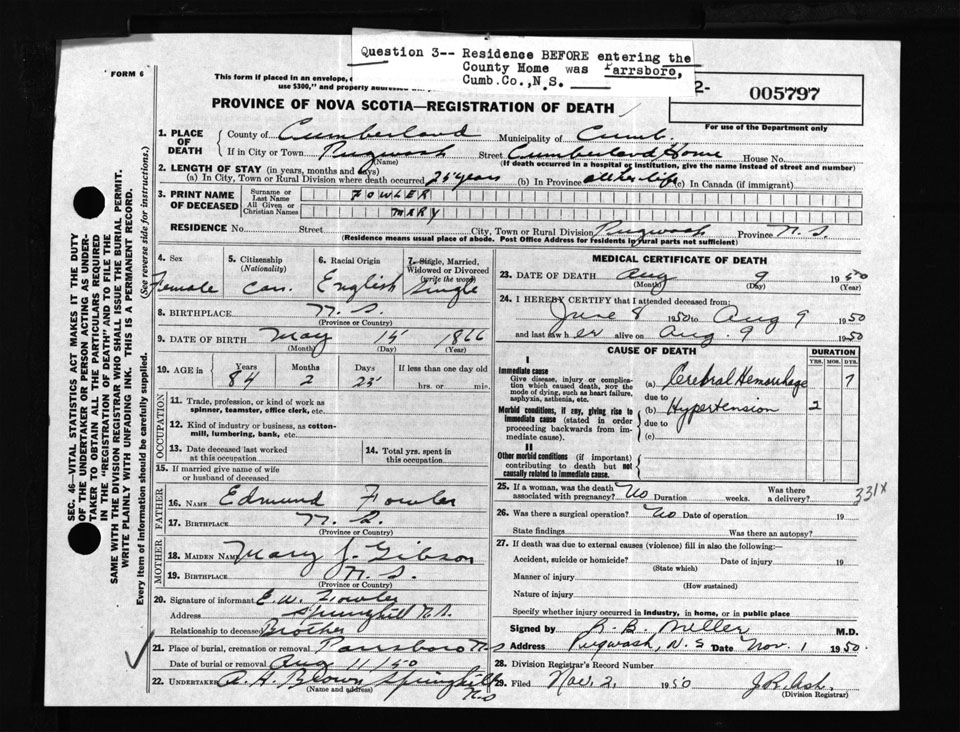 Question 3-- Residence BEFORE entering the
County Home was Parrsboro,
Cumb.Co.,N.S.
FORM 6
This form if placed in an envelope,
use $300," and property addressed
2- 005797
For use of the Department only
PROVINCE OF NOVA SCOTIA—REGISTRATION OF DEATH
1. PLACE OF DEATH
County of Cumberland Municipality of Cumb.
If in City or Town Pugwash Street Cumberland Home House No.
(Name) (If death occurred in a hospital or institution, give the name instead of street and number)
2. LENGTH OF STAY (in years, months and days)
(a) In City, Town or Rural Division where death occurred 25 years (b) In Province all her life (c) In Canada (if immigrant)
3. PRINT NAME OF DECEASED
Surname or Last Name FOWLER
All Given or Christian Names MARY
RESIDENCE No. Street City, Town or Rural Division Pugwash Province N.S.
(Residence means usual place of abode. Post Office Address for residents in rural parts not sufficient)
4. Sex Female
5. Citizenship (Nationality) Can.
6. Racial Origin English
7. Single, Married, Widowed or Divorced (write the word) Single
8. BIRTHPLACE N.S.
(Province or Country)
9. DATE OF BIRTH May 15 1866
(Month) (Day) (Year)
10. AGE in Years Months Days If less than one day old
84 2 25 hrs. or min.
OCCUPATION
11. Trade, profession, or kind of work as spinner, teamster, office clerk, etc.
12. Kind of industry or business, as cotton-mill, lumbering, bank, etc.
13. Date deceased last worked at this occupation
14. Total yrs. spent in this occupation
15. If married give name of wife or husband of deceased
FATHER
16. NAME Edmund Fowler
17. BIRTHPLACE N.S.
(Province or Country)
MOTHER
18. MAIDEN NAME Mary J. Gibson
19. BIRTHPLACE N.S.
(Province or Country)
20. Signature of informant E.W. Fowler
Address Springhill N.S.
Relationship to deceased Brother
21. Place of burial, cremation or removal Parrsboro N.S
Date of burial or removal Aug 11/50
22. UNDERTAKER A. H. Brown Springhill N.S
(Name and address)
MEDICAL CERTIFICATE OF DEATH
23. DATE OF DEATH Aug 9 1950
(Month) (Day) (Year)
24. I HEREBY CERTIFY that I attended deceased from:
June 8 1950 to Aug 9 1950
and last saw her alive on Aug. 9 1950
CAUSE OF DEATH DURATION
YRS. MOS. DYS.
I
Immediate cause
Give disease, injury or complication which caused death, NOT the mode of dying, such as heart failure, asphyxia, asthenia, etc.
(a) Cerebral Hemorrhage 7
due to
Morbid conditions, if any, giving rise to immediate cause (stated in order proceeding backwards from immediate cause).
(b) Hypertension 2
due to
(c)
II
Other morbid conditions (if important) contributing to death but not causally related to immediate cause.
25. If a woman, was the death associated with pregnancy? No Duration weeks. Was there a delivery?
331X
26. Was there a surgical operation? No Date of operation 19
State findings Was there an autopsy?
27. If death was due to external causes (violence) fill in also the following:—
Accident, suicide or homicide? Date of injury 19
(State which)
Manner of injury
(How sustained)
Nature of injury
Specify whether injury occurred in Industry, in home, or in public place
Signed by R. B. Miller M.D.
Address Pugwash, N.S Date Nov. 1 1950.
28. Division Registrar's Record Number
29. Filed Nov. 2, 1950 J.R. Ash.
(Division Registrar)
SEC. 46—VITAL STATISTICS ACT MAKES IT THE DUTY
OF THE UNDERTAKER OR PERSON ACTING AS UNDER-
TAKER TO OBTAIN ALL THE PARTICULARS REQUIRED
IN THE "REGISTRATION OF DEATH" AND TO FILE THE
SAME WITH THE DIVISION REGISTRAR WHO SHALL ISSUE THE BURIAL PERMIT.
WRITE PLAINLY WITH UNFADING INK. THIS IS A PERMANENT RECORD.
Every item of information should be carefully supplied. (See reverse side for instructions.)